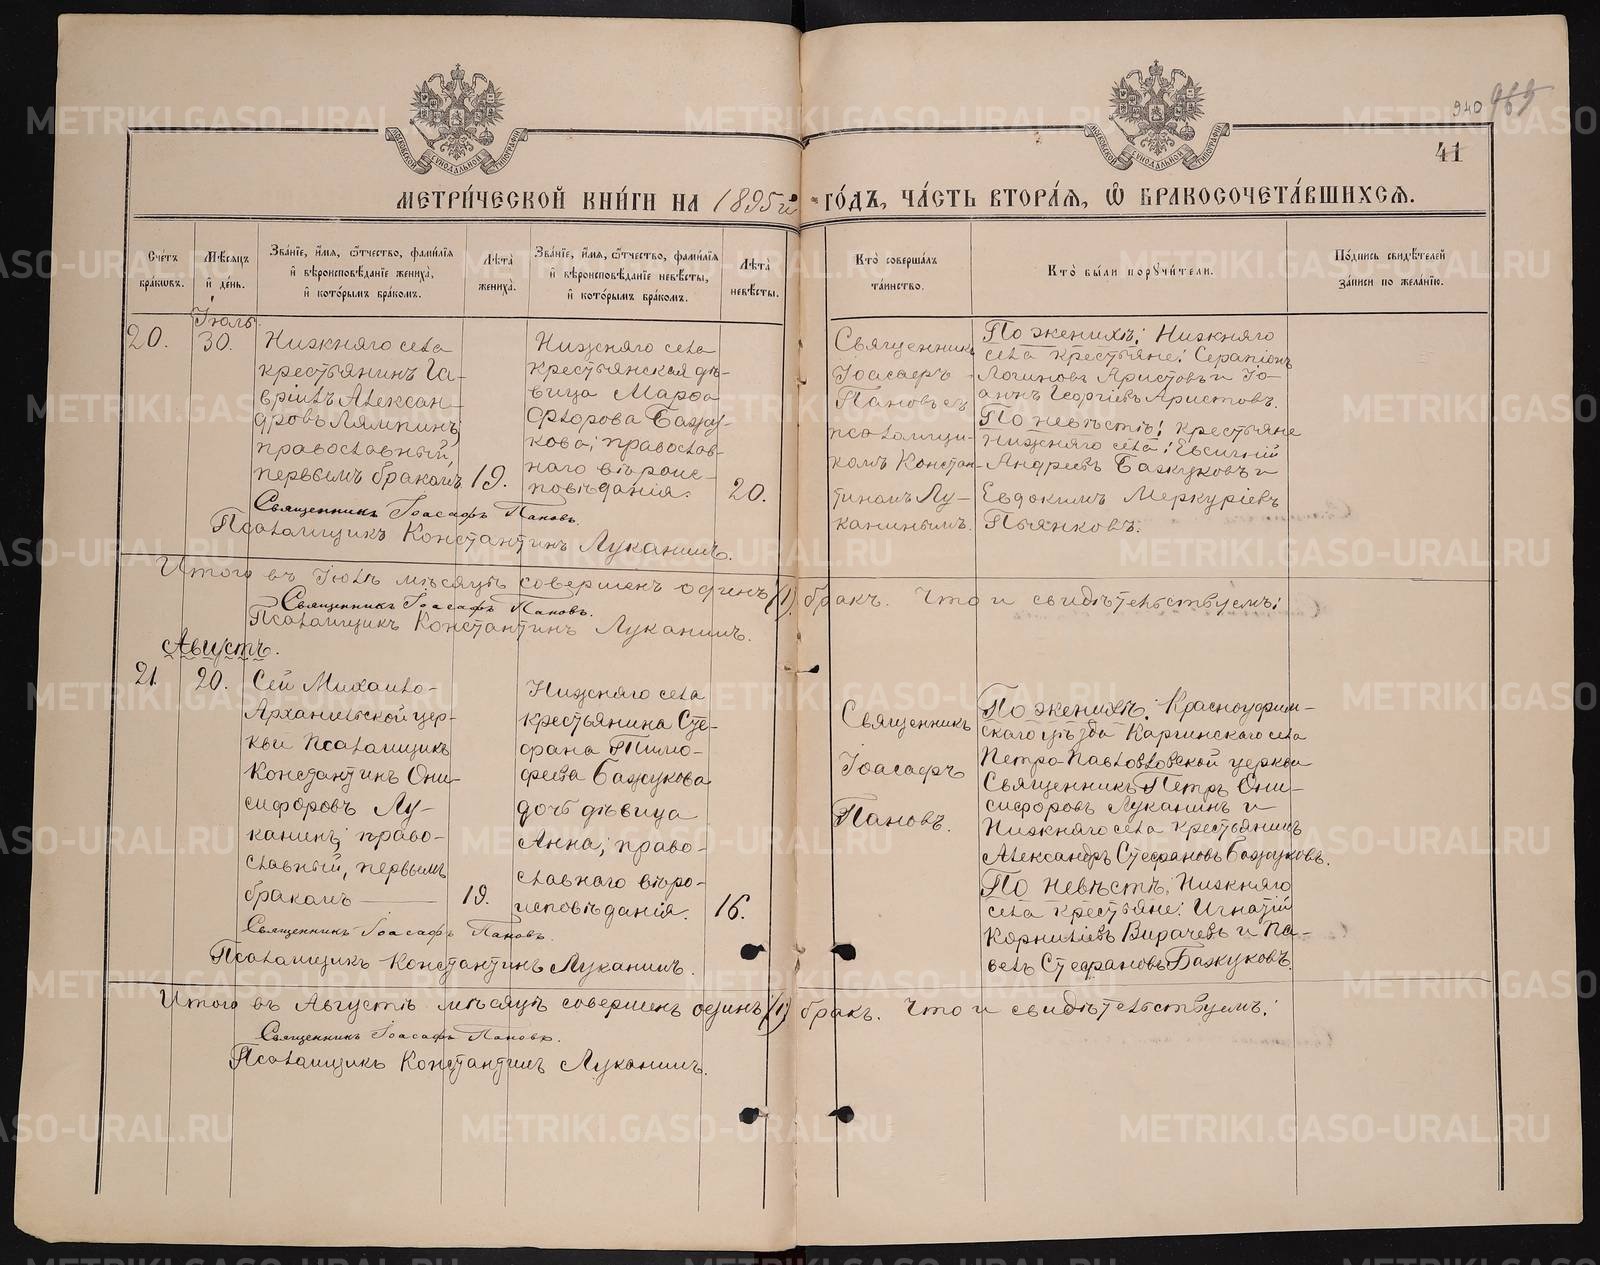 940 969
41
МЕТРИ́ЧЕСКОЙ КНИ́ГИ НА 1895й ГО́ДЪ, ЧА́СТЬ ВТОРА́Я, Ѡ БРАКОСОЧЕТА́ВШИХСЯ.
Сче́тъ
бра́ковъ.
Мѣ́сяцъ
и҆ де́нь.
Зва́нїе, и҆́мя, ѻ҆́тчество, фами́лїя
и҆ вѣроисповѣ́данїе жениха̀,
и҆ кото́рымъ бра́комъ.
Лѣ́та
жениха̀.
Зва́нїе, и҆́мя, ѻ҆́тчество, фами́лїя
и҆ вѣроисповѣ́данїе невѣ́сты,
и҆ кото́рымъ бра́комъ.
Лѣ́та
невѣ́сты.
Кто̀ соверша́лъ
та́инство.
Кто̀ бы́ли порꙋчи́тели.
По́дпись свидѣ́телей
за́писи по жела́нїю.
20.
Іюль.
30.
Нижняго села
крестьянинъ Га-
вріилъ Алексан-
дровъ Лямпинъ,
православный,
первымъ бракомъ
19.
Нижняго села
крестьянская дѣ-
вица Марфа
Фѣдорова Бажу-
кова; православ-
наго вѣроис-
повѣданія.
20.
Священникъ
Іоасафъ
Пановъ съ
псаломщи-
комъ Констан-
тиномъ Лу-
канинымъ.
По женихѣ: Нижняго
села крестьяне: Серапіонъ
Логиновъ Аристовъ и Іо-
аннъ Георгіевъ Аристовъ.
По невѣстѣ: крестьяне
нижняго села: Евсигній
Андреевъ Бажуковъ и
Евдокимъ Меркуріевъ
Пьянковъ.
Священникъ Іоасафъ Пановъ.
Псаломщикъ Константинъ Луканинъ.
Итого въ Іюлѣ мѣсяцѣ совершенъ одинъ (1) бракъ. Что и свидѣтельствуемъ:
Священникъ Іоасафъ Пановъ.
Псаломщикъ Константинъ Луканинъ.
Августъ.
21.
20.
Сей Михаило-
Архангельской цер-
кви псаломщикъ
Константинъ Они-
сифоровъ Лу-
канинъ; право-
славный, первымъ
бракомъ
19.
Нижняго села
крестьянина Сте-
фана Тимо-
феева Бажукова
дочь дѣвица
Анна; право-
славнаго вѣро-
исповѣданія.
16.
Священникъ
Іоасафъ
Пановъ.
По женихѣ: Красноуфим-
скаго уѣзда Каргинскаго села
Петро-Павловской церкви
Священникъ Петръ Они-
сифоровъ Луканинъ и
Нижняго села крестьянинъ
Александръ Стефановъ Бажуковъ.
По невѣстѣ: Нижняго
села крестьяне: Игнатій
Корниліевъ Вирачевъ и Па-
велъ Стефановъ Бажуковъ.
Священникъ Іоасафъ Пановъ.
Псаломщикъ Константинъ Луканинъ.
Итого въ Августѣ мѣсяцѣ совершенъ одинъ (1) бракъ. Что и свидѣтельствуемъ:
Священникъ Іоасафъ Пановъ.
Псаломщикъ Константинъ Луканинъ.
METRIKI.GASO-URAL.RU